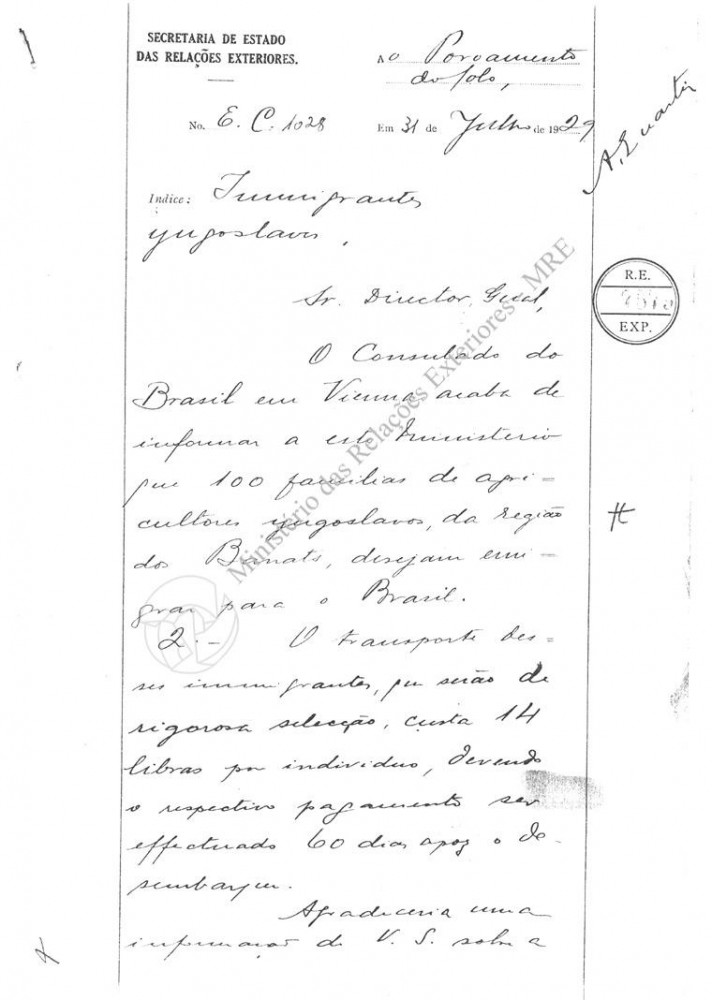 SECRETARIA DE ESTADO
DAS RELAÇÕES EXTERIORES.
Ao Povoamento
do Solo,
No. E. C. 1028
Em 31 de Julho de 1929
Indice: Immigrantes
yugoslavos.
Sr. Director Geral,
R. E.
EXP.
O Consulado do
Brasil em Vienna acaba de
informar a este Ministerio
que 100 familias de agri-
cultores yugoslavos, da região
dos Banats, desejam emi-
grar para o Brasil.
2.- O transporte des-
ses immigrantes, que serão de
rigorosa selecção, custa 14
libras por individuo, devendo
o respectivo pagamento ser
effectuado 60 dias apoz o de-
sembarque.
Agradeceria uma
informação de V. S. sobre a
Ministério das Relações Exteriores - MRE